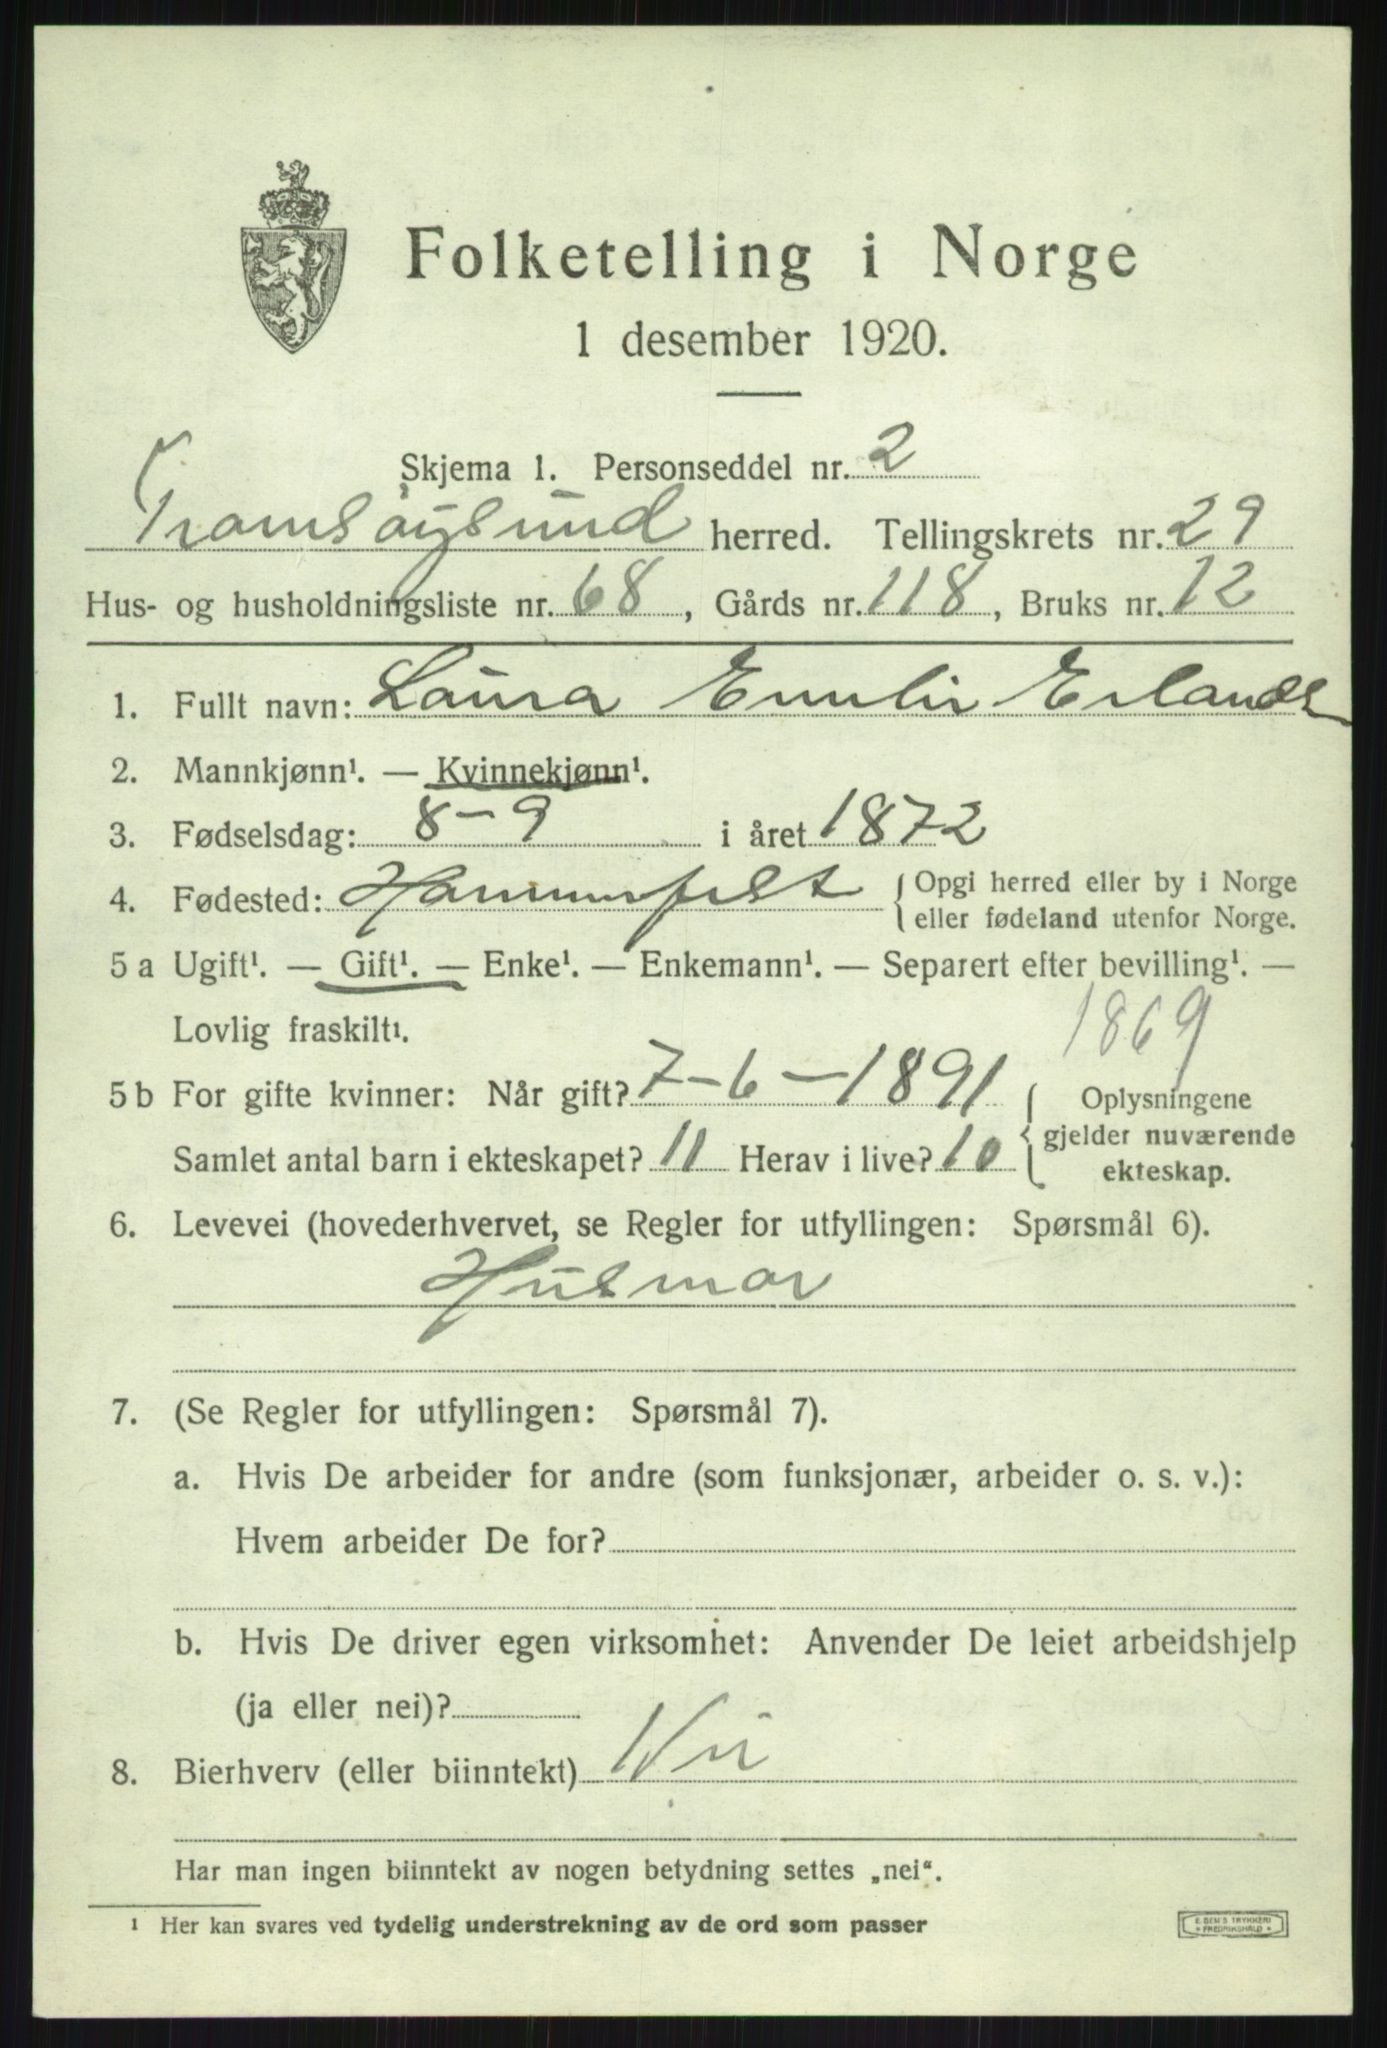 Folketelling i Norge
1 desember 1920.
Skjema 1. Personseddel nr. 2
Tromsøysund herred. Tellingskrets nr. 29
Hus- og husholdningsliste nr. 68, Gårds nr. 118, Bruks nr. 12
1. Fullt navn: Laura Emilie Erlands
2. Mannkjønn¹. — Kvinnekjønn¹.
3. Fødselsdag: 8-9 i året 1872
4. Fødested: Hammerfest { Opgi herred eller by i Norge
eller fødeland utenfor Norge.
5 a Ugift¹. — Gift¹. — Enke¹. — Enkemann¹. — Separert efter bevilling¹. —
Lovlig fraskilt¹.
1869
5 b For gifte kvinner: Når gift? 7-6-1891
Samlet antal barn i ekteskapet? 11 Herav i live? 10
{ Oplysningene
gjelder nuværende
ekteskap.
6. Levevei (hovederhvervet, se Regler for utfyllingen: Spørsmål 6).
Husmor
7. (Se Regler for utfyllingen: Spørsmål 7).
a. Hvis De arbeider for andre (som funksjonær, arbeider o. s. v.):
Hvem arbeider De for?
b. Hvis De driver egen virksomhet: Anvender De leiet arbeidshjelp
(ja eller nei)?
8. Bierhverv (eller biinntekt) Nei
Har man ingen biinntekt av nogen betydning settes „nei“.
¹ Her kan svares ved tydelig understrekning av de ord som passer
E. SEM'S TRYKKERI
* FREDRIKSHALD *